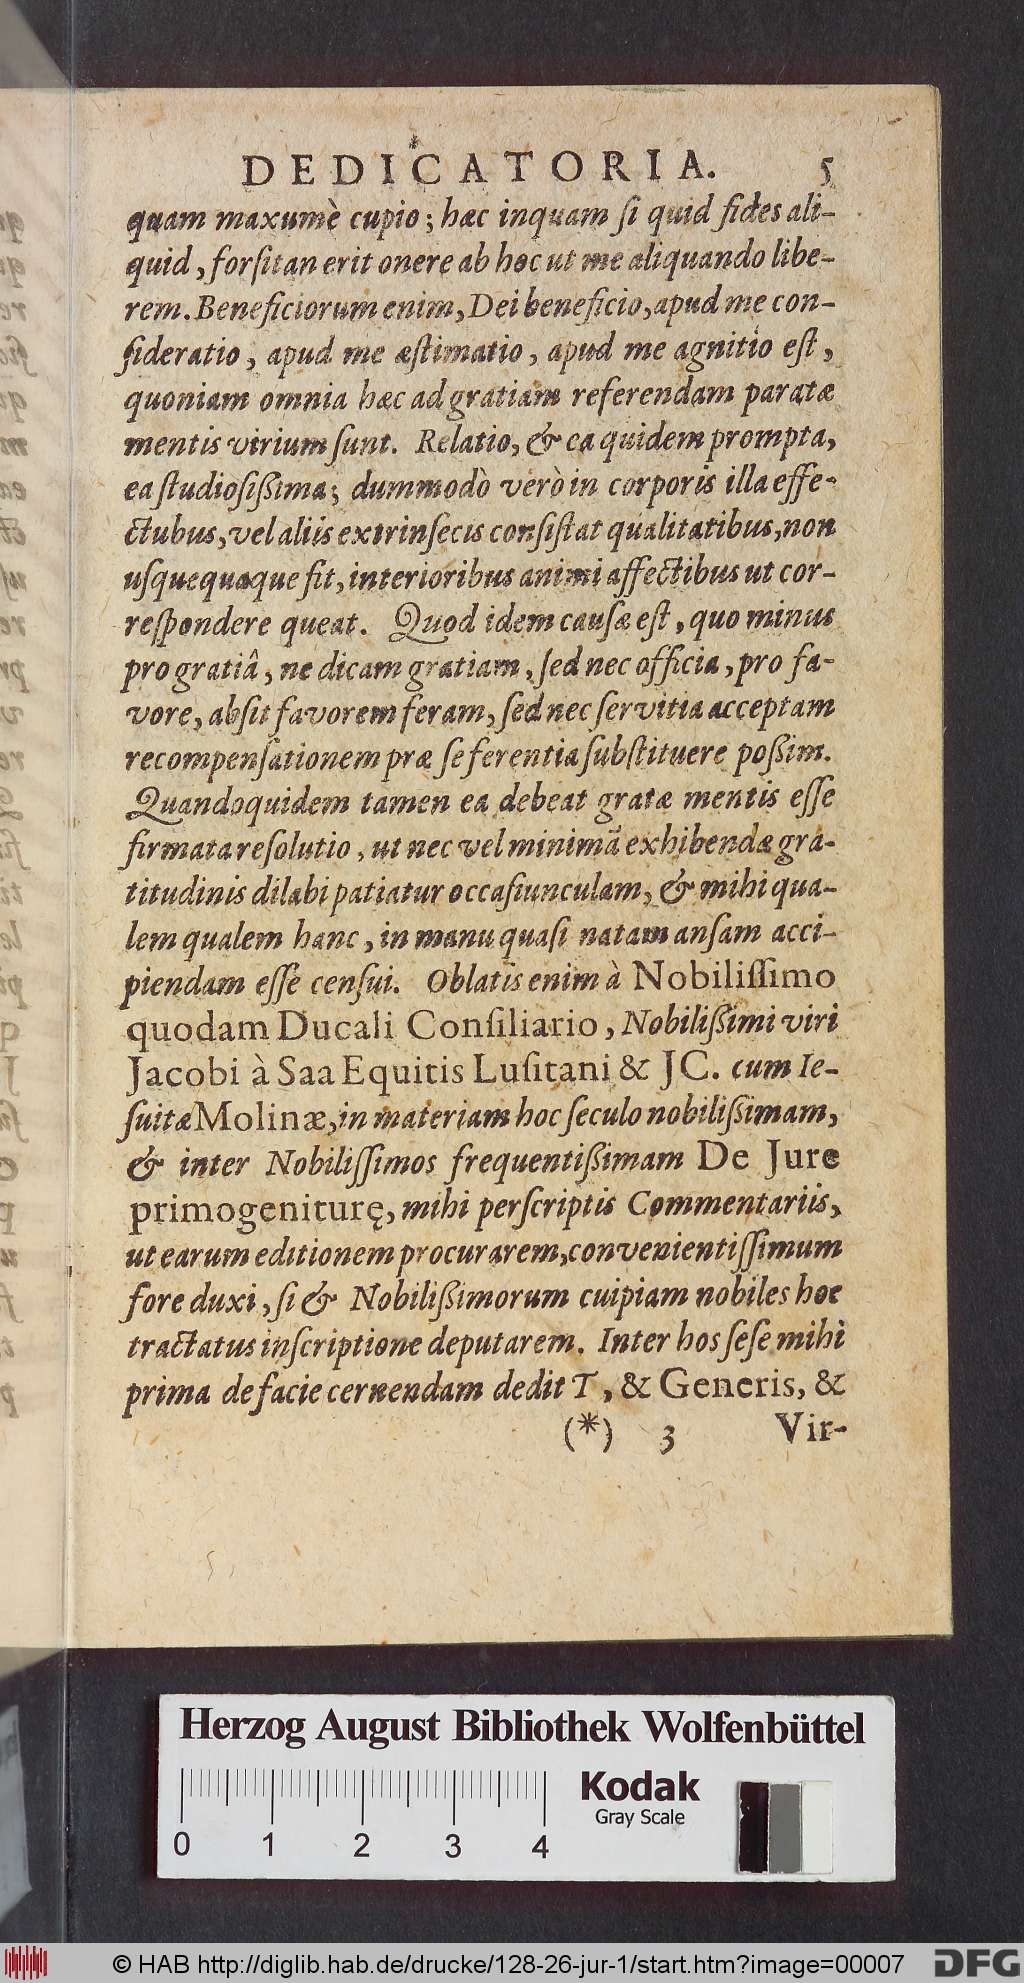 DEDICATORIA. 5
quam maxumè cupio; hæc inquam ſi quid fides ali-
quid, forſitan erit onere ab hoc ut me aliquando libe-
rem. Beneficiorum enim, Dei beneficio, apud me con-
ſideratio, apud me æſtimatio, apud me agnitio eſt,
quoniam omnia hæc ad gratiam referendam paratæ
mentis virium ſunt. Relatio, & ea quidem prompta,
ea ſtudioſißima; dummodò verò in corporis illa effe-
ctubus, vel aliis extrinſecis conſiſtat qualitatibus, non
uſquequaque fit, interioribus animi affectibus ut cor-
reſpondere queat. Quod idem cauſæ eſt, quo minus
pro gratiâ, ne dicam gratiam, ſed nec officia, pro fa-
vore, abſit favorem feram, ſed nec ſervitia acceptam
recompenſationem præ ſe ferentia ſubſtituere poßim.
Quandoquidem tamen ea debeat gratæ mentis eſſe
firmata reſolutio, ut nec vel minimā exhibendæ gra-
titudinis dilabi patiatur occaſiunculam, & mihi qua-
lem qualem hanc, in manu quaſi natam anſam acci-
piendam eſſe cenſui. Oblatis enim à Nobiliſſimo
quodam Ducali Conſiliario, Nobilißimi viri
Jacobi à Saa Equitis Luſitani & JC. cum Ie-
ſuitæ Molinæ, in materiam hoc ſeculo nobilißimam,
& inter Nobiliſſimos frequentißimam De Jure
primogeniturę, mihi perſcriptis Commentariis,
ut earum editionem procurarem, convenientiſſimum
fore duxi, ſi & Nobilißimorum cuipiam nobiles hoc
tractatus inſcriptione deputarem. Inter hos ſeſe mihi
prima de facie cernendam dedit T, & Generis, &
(*) 3 Vir-
Herzog August Bibliothek Wolfenbüttel
Kodak
Gray Scale
0 1 2 3 4
© HAB http://diglib.hab.de/drucke/128-26-jur-1/start.htm?image=00007 DFG